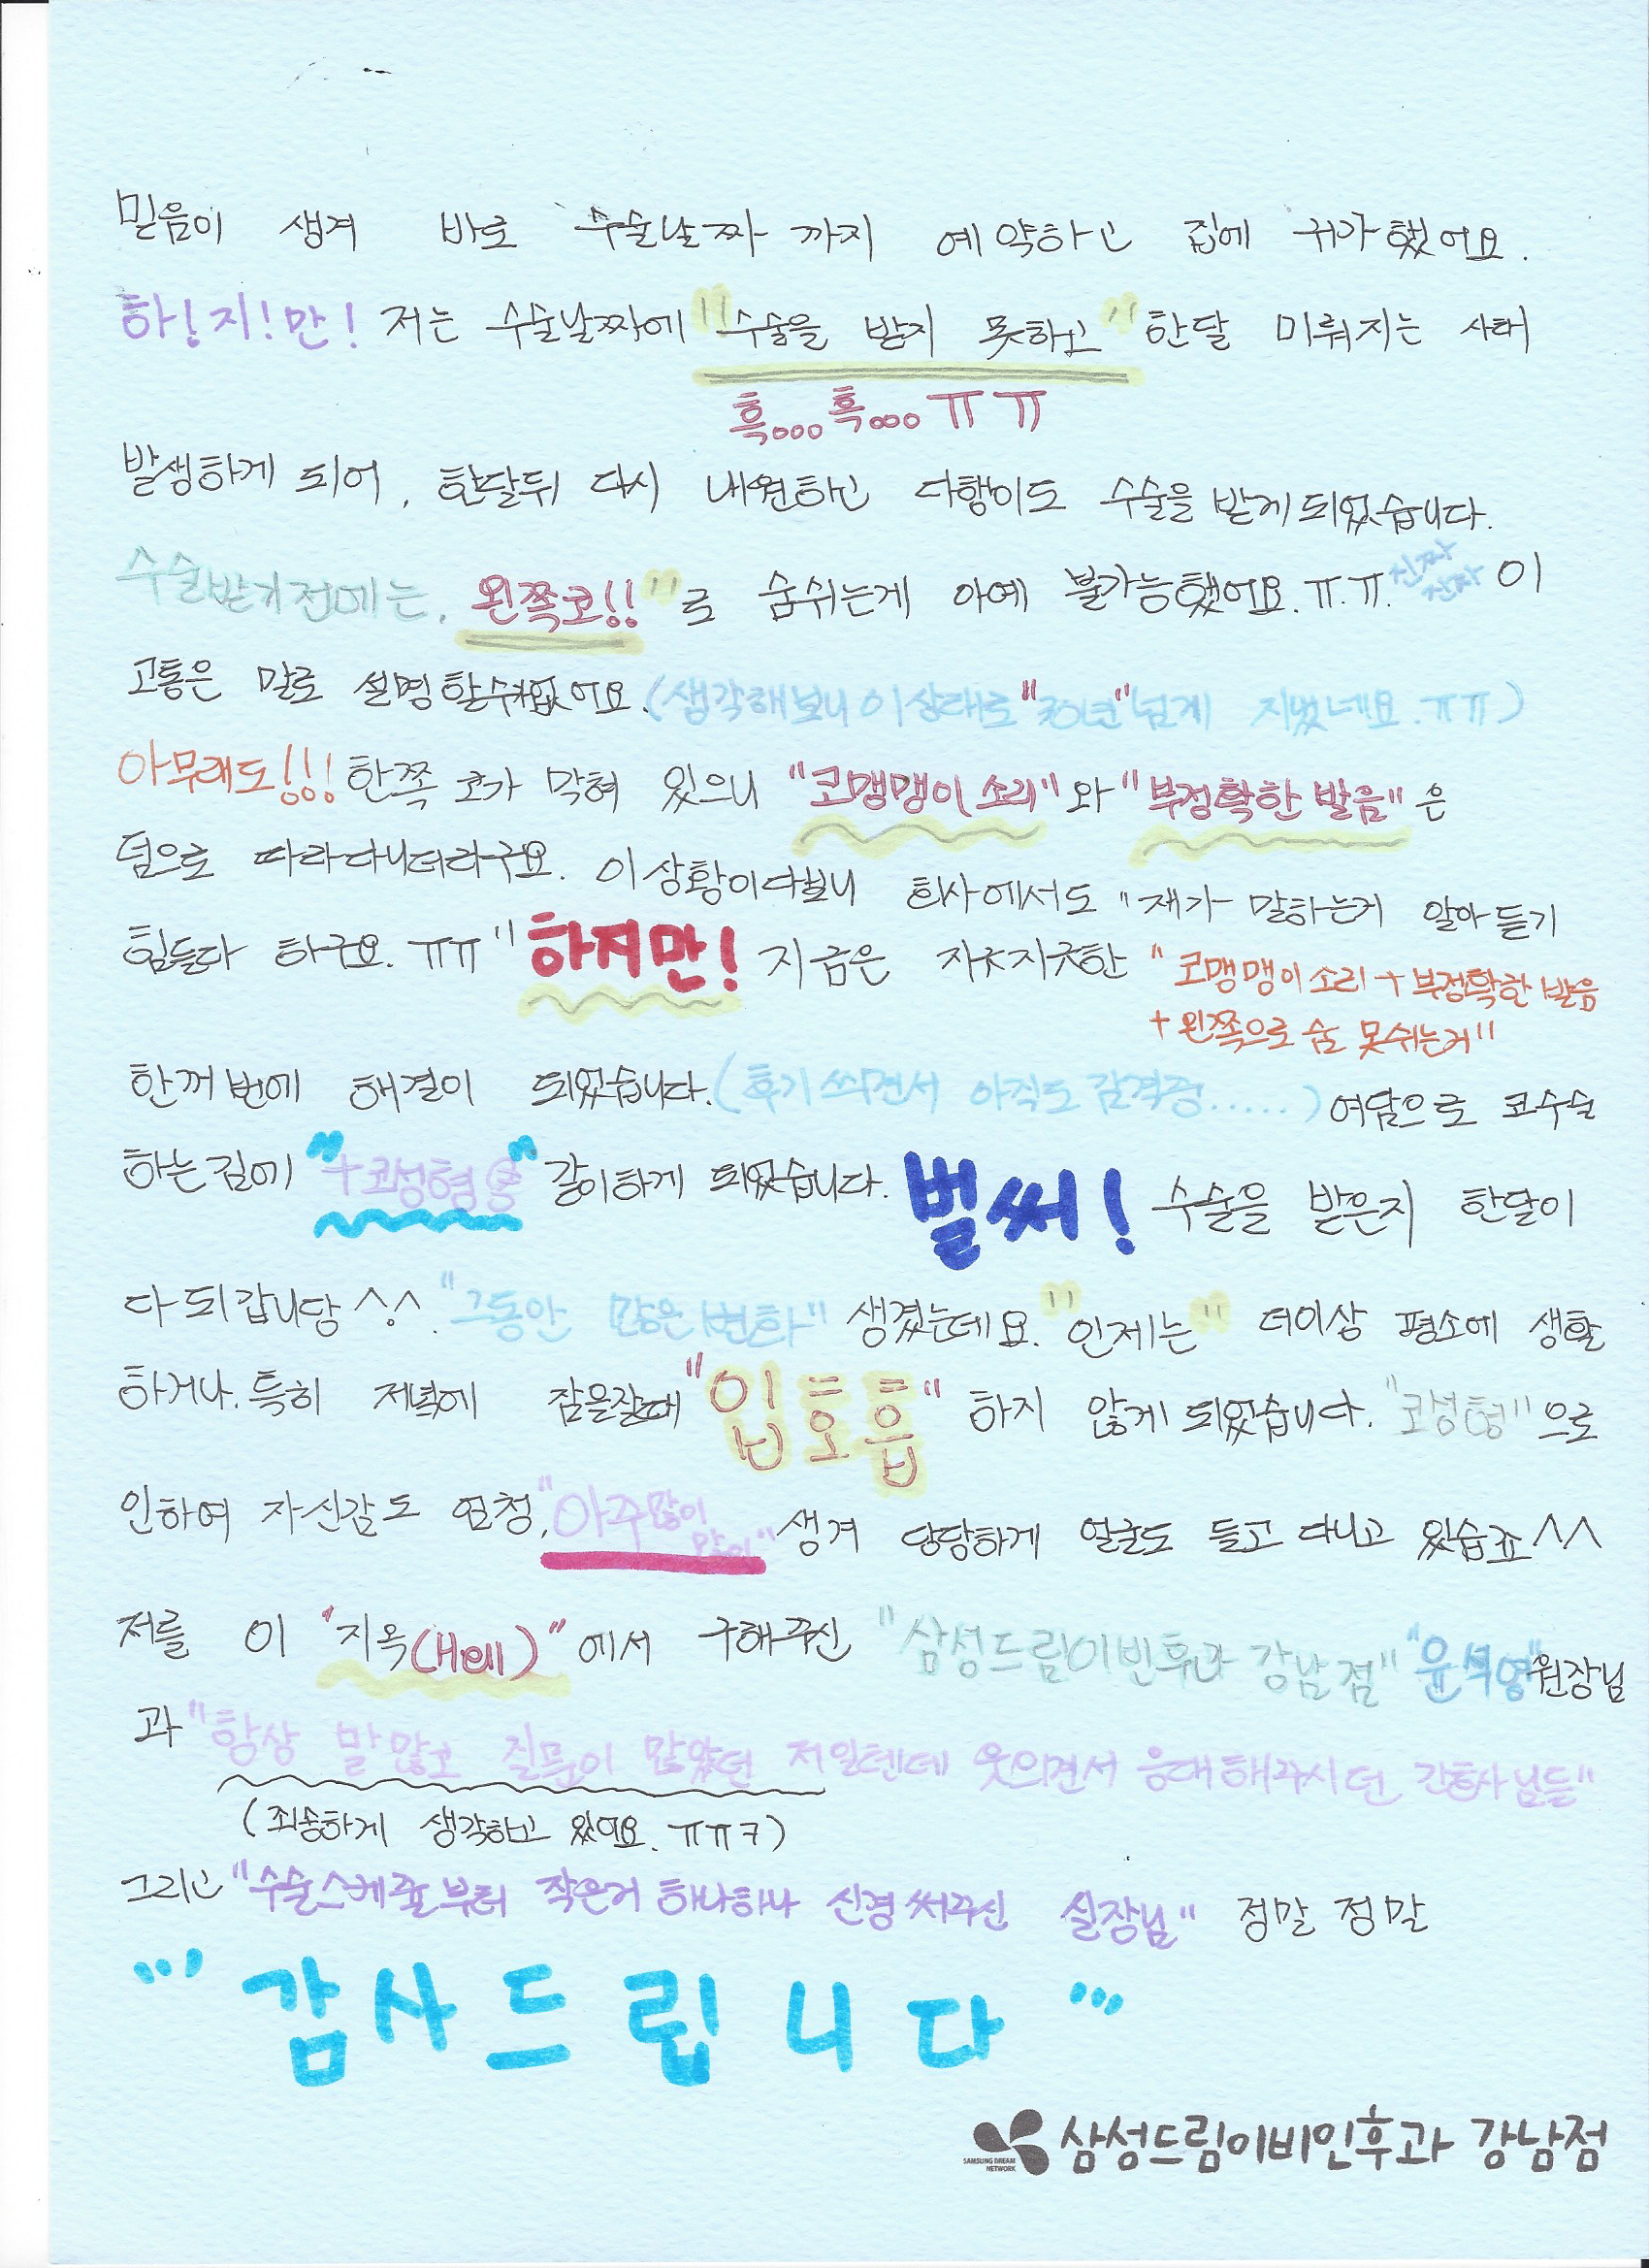 믿음이 생겨 바로 수술날짜 까지 예약하고 집에 귀가했어요.
하!지!만! 저는 수술날짜에 "수술을 받지 못하고" 한달 미뤄지는 사태
흑...흑...ㅠㅠ
발생하게 되어, 한달뒤 다시 내원하고 다행이도 수술을 받게되었습니다.
수술받기전에는, 왼쪽코!!"로 숨쉬는게 아예 불가능했어요.ㅠ.ㅠ. 진짜 진짜 이
고통은 말로 설명할수없어요.(생각해보니 이상태로 "30년"넘게 지냈네요.ㅠㅠ)
아무래도!!! 한쪽 코가 막혀 있으니 "코맹맹이 소리"와 "부정확한 발음"은
덤으로 따라다니더라구요. 이상황이다보니 회사에서도 "재가 말하는거 알아듣기
힘들다 하구요.ㅠㅠ" 하지만! 지금은 지긋지긋한 "코맹맹이 소리+부정확한 발음
+왼쪽으로 숨 못쉬는거"
한꺼번에 해결이 되었습니다.(후기쓰면서 아직도 감격중.....) 여담으로 코수술
하는김에 "+코성형" 같이하게 되었습니다. 벌써! 수술을 받은지 한달이
다되갑니당^.^. "그동안 많은변화" 생겼는데요. "인제는" 더이상 평소에 생활
하거나.특히 저녁에 잠을잘때 "입호흡" 하지 않게되었습니다. "코성형"으로
인하여 자신감도 엄청, "아주많이 많이" 생겨 당당하게 얼굴도 들고 다니고 있습죠^^
저를 이 "지옥(Hell)"에서 구해주신 "삼성드림이빈후과 강남점" "윤석영"원장님
과 "항상 말많고 질문이 많았던 저일텐데 웃으면서 응대해주시던 간호사님들"
(죄송하게 생각하고 있어요.ㅠㅠㅋ)
그리고 "수술스케줄부터 작은거 하나하나 신경써주신 실장님" 정말 정말
"'감사드립니다'"
SAMSUNG DREAM NETWORK 삼성드림이비인후과 강남점